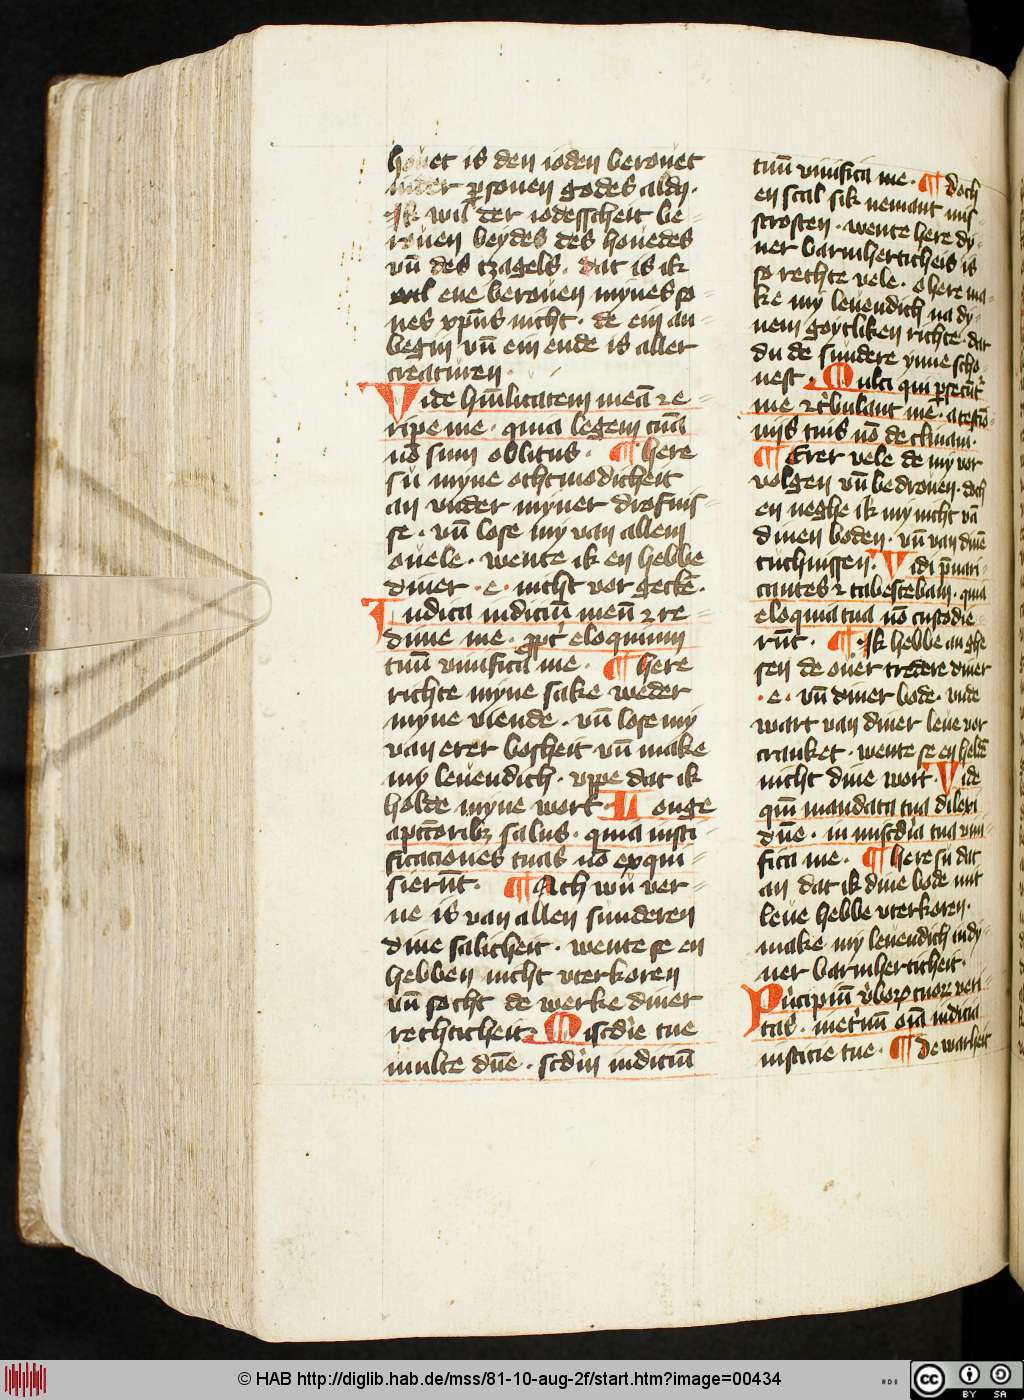 houet is den ioden berouet
vnder psonen godes aldꝰ·
Ik wil der iodesscheit be⸗
rouen beydes des houedes
vn̄ des tzagels· dat is ik
wil ene berouen mynes so⸗
nes xp̄us nicht· de ein an⸗
begin vn̄ ein ende is aller
creaturen·
Vide hūilitatem meā ⁊ e⸗
ripe me· quia legem tuā
nō sum oblitus· ¶ here
sū myne othmodicheit
an vnder myner drofnis⸗
se· vn̄ lose my van allem
ouele· wente ik en hebbe
diner · e · nicht vor getē·
Iudica iudiciū meū ⁊ re⸗
dime me· ꝓpt̄ eloquium
tuū viuifica me· ¶ here
richte myne sake weder
myne viende· vn̄ lose my
van erer bosheit vn̄ make
my leuendich· vppe dat ik
holde myne wort· Longe
apctōribꝫ salus· quia iusti⸗
ficaciones tuas nō exqui⸗
sierūt· ¶ Ach wū ver⸗
ne is van allen sunderen
dine salicheit· wente se en
hebben nicht vterkoren
vn̄ socht de werke diner
rechticheit Misc̄die tue
multe dn̄e· sc̄dm iudiciū
tuū viuifica me· ¶ doch
en scal sik nemant mis⸗
strosten· wente here dy⸗
ner barmherticheis is
so rechte vele· o here ma⸗
ke my leuendich na dy⸗
nem goytliken richte· dat
du de sundere ynne scho⸗
nest· Multi qui psecūt̄
me ⁊ t̄bulant me· a testiō⸗
niis tuis nō declinaui·
¶ Erer vele de my vor
volgen vn̄ bedrouen· doch
en neghe ik my nicht vā
dinen boden· vn̄ van dinē
tuchnissen· Vidi p̄uari⸗
cantes ⁊ tabescebam· quia
eloquia tua nō custodie⸗
rūt· ¶ Ik hebbe an ghe
sen de ouer tredere diner
· e · vn̄ diner bode· vnde
wart van diner leue vor
cranket· wente se en heldē
nicht dine wort· Vide
qm̄ mandata tua dilexi
dn̄e· in misc̄dia tua viui⸗
fica me· ¶ here sū dat
an dat ik dine bode mit
leue hebbe vterkoren·
make my leuendich in dy⸗
ner barmherticheit·
Prīcipiū v̄boꝝ tuoꝝ veri⸗
tas· inet̄nū oīa iudicia
iusticie tue· ¶ De warheit
© HAB http://diglib.hab.de/mss/81-10-aug-2f/start.htm?image=00434
HAB
CC BY SA